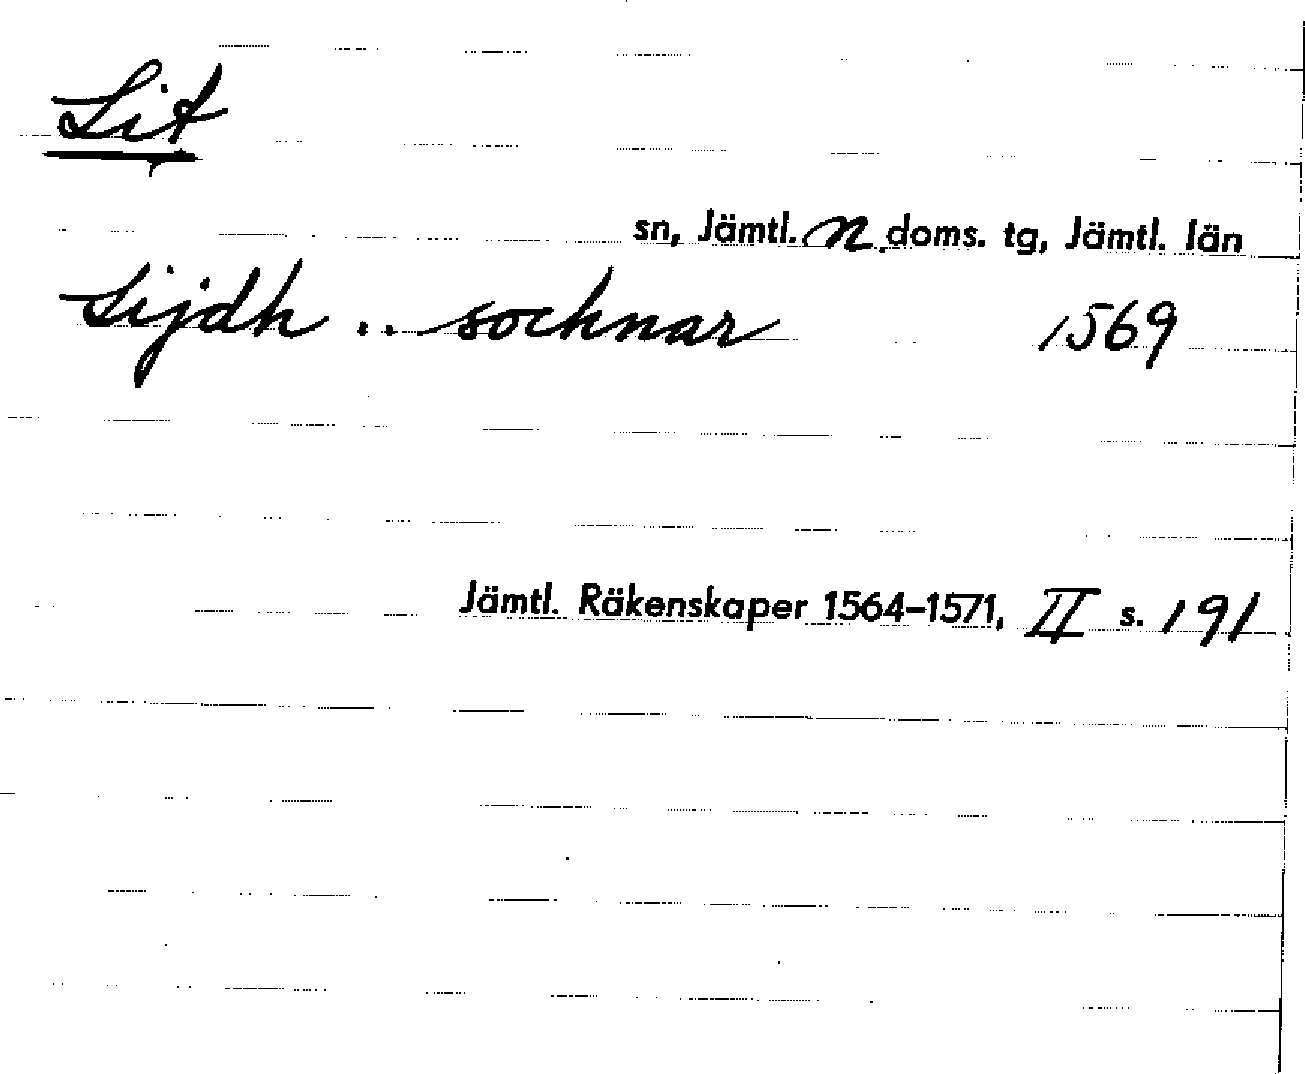 Lit
sn, Jämtl. n. doms. tg, Jämtl. län
Lijdh .. socknar 1569
Jämtl. Räkenskaper 1564-1571, II s. 191